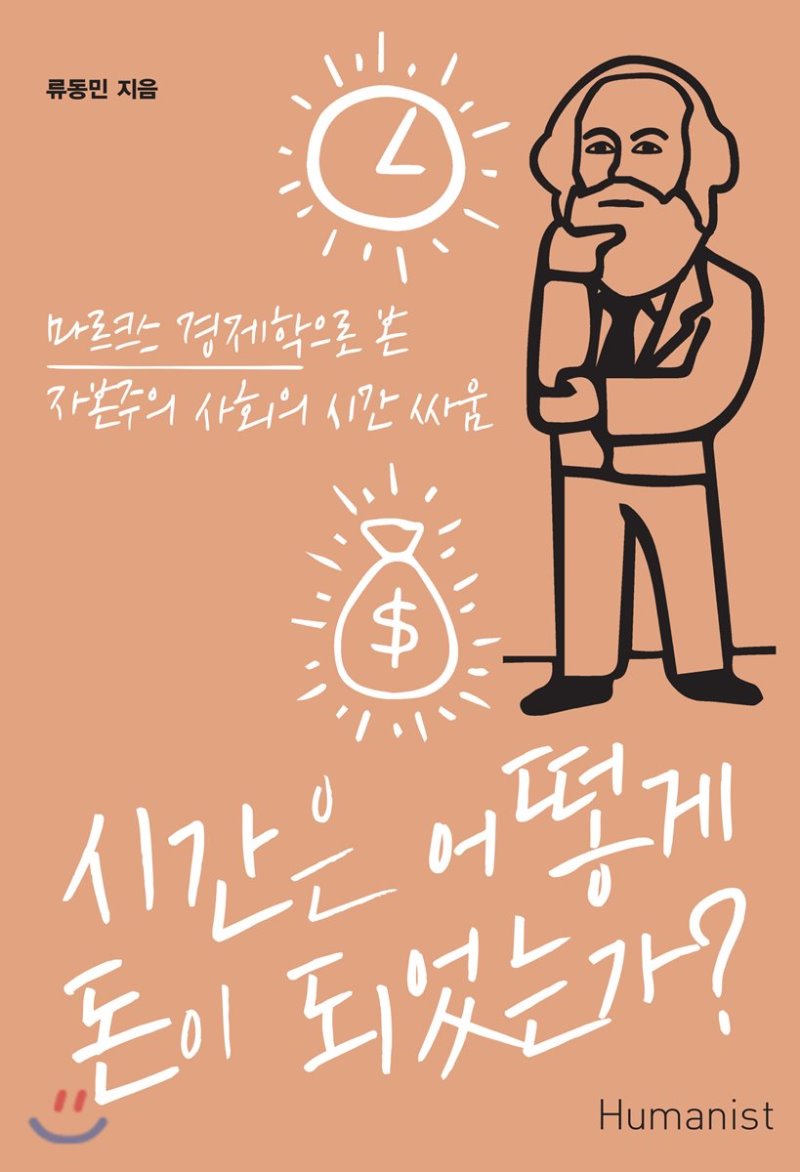 류동민 지음
마르크스 경제학으로 본
자본주의 사회의 시간 싸움
$
시간은 어떻게
돈이 되었는가?
Humanist